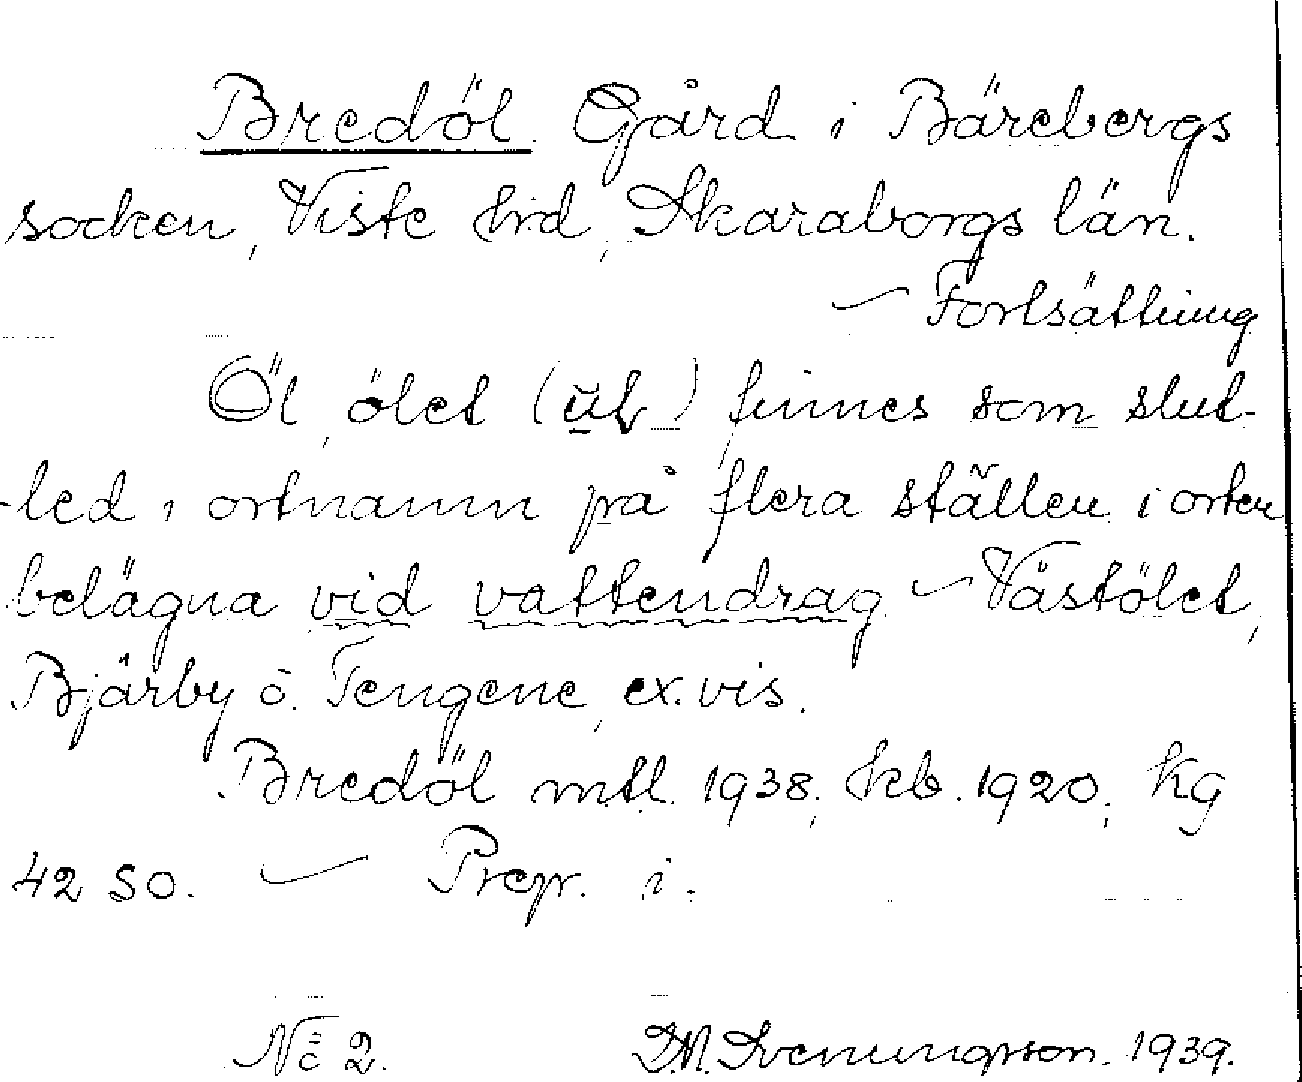 Bredöl Gård i Bärebergs
socken, Viste hrd, Skaraborgs län.
– Fortsättning
Öl, ölet ( ) finnes som slut-
-led i ortnamn på flera ställen i orten
belägna vid vattendrag – Västölet,
Bjärby o. Tengene, ex. vis.
Bredöl mtl. 1938, kb. 1920, kg
42 SO. – Prep. i.
No 2. D.N. Svenungsson. 1939.